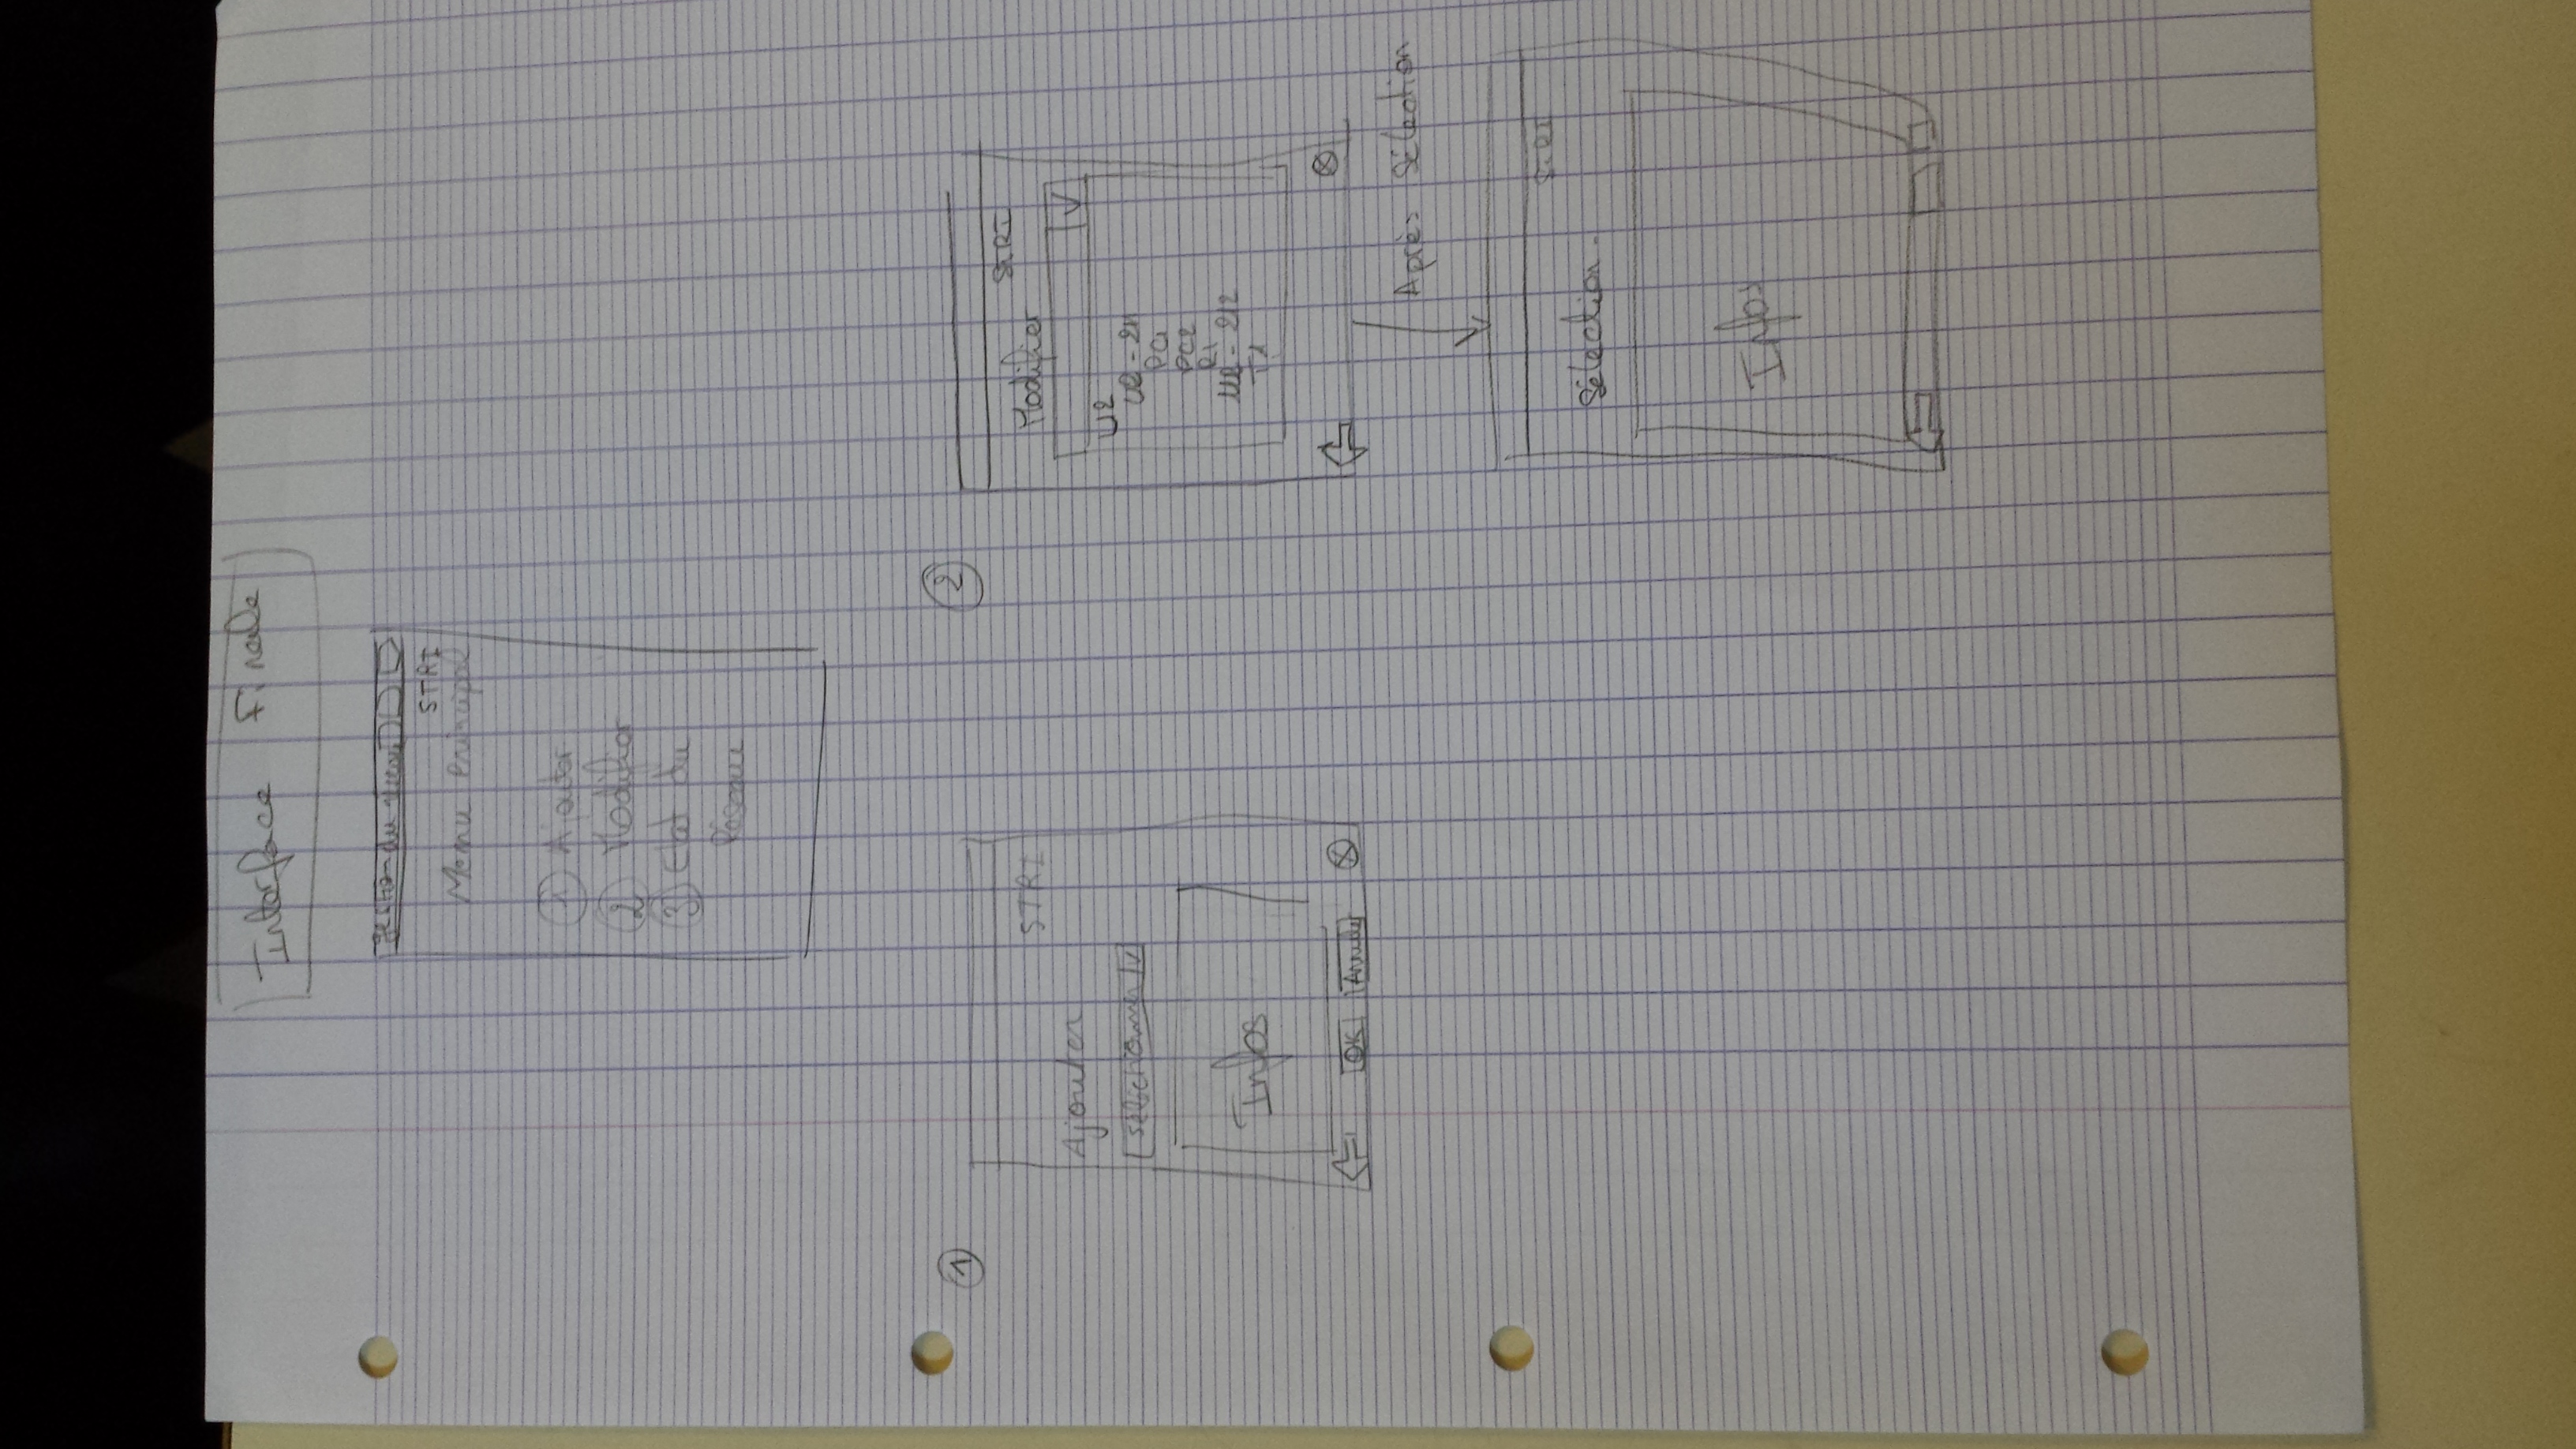 Interface Finale
Gestion du réseau
STRI
Menu Principal
① Ajouter
② Modifier
③ Etat du
Réseau
①
STRI
Ajouter
Sélectionner V
Infos
OK Annuler
②
STRI
Modifier
V
U2
U2-211
PC1
PC2
R1
U2-212
T1
Après Sélection
STRI
Sélection.
Infos